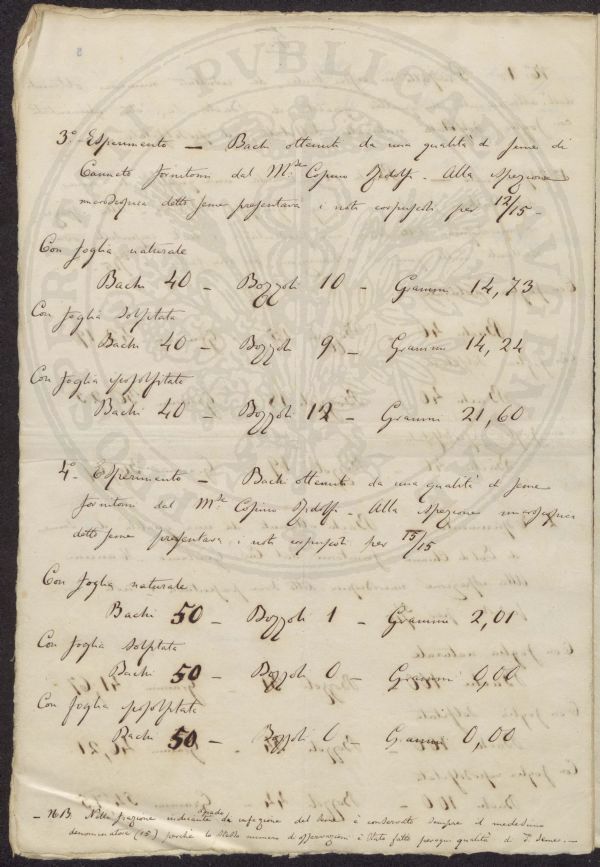 3.° Esperimento — Bachi ottenuti da una qualità di seme di
Canneto fornitomi dal M.se Copino Ridolfi - Alla ispezione
microscopica detto seme presentava i noti corpuscoli per 12/15 -
Con foglia naturale
Bachi 40 — Bozzoli 10 — Grammi 14,73
Con foglia solfitata
Bachi 40 — Bozzoli 9 — Grammi 14,24
Con foglia iposolfitata
Bachi 40 — Bozzoli 12 — Grammi 21,60
4.° Esperimento — Bachi ottenuti da una qualità di seme
fornitomi dal M.se Copino Ridolfi - Alla ispezione microscopica
detto seme presentava i noti corpuscoli per 15/15
Con foglia naturale
Bachi 50 — Bozzoli 1 — Grammi 2,01
Con foglia solfitata
Bachi 50 — Bozzoli 0 — Grammi 0,00
Con foglia iposolfitata
Bachi 50 — Bozzoli 0 — Grammi 0,00
- NB. Nella frazione indicante il grado da infezione del seme è conservato sempre il medesimo
denominatore (15) perché lo stesso numero di osservazioni è stato fatto per ogni qualità di d.° seme. —